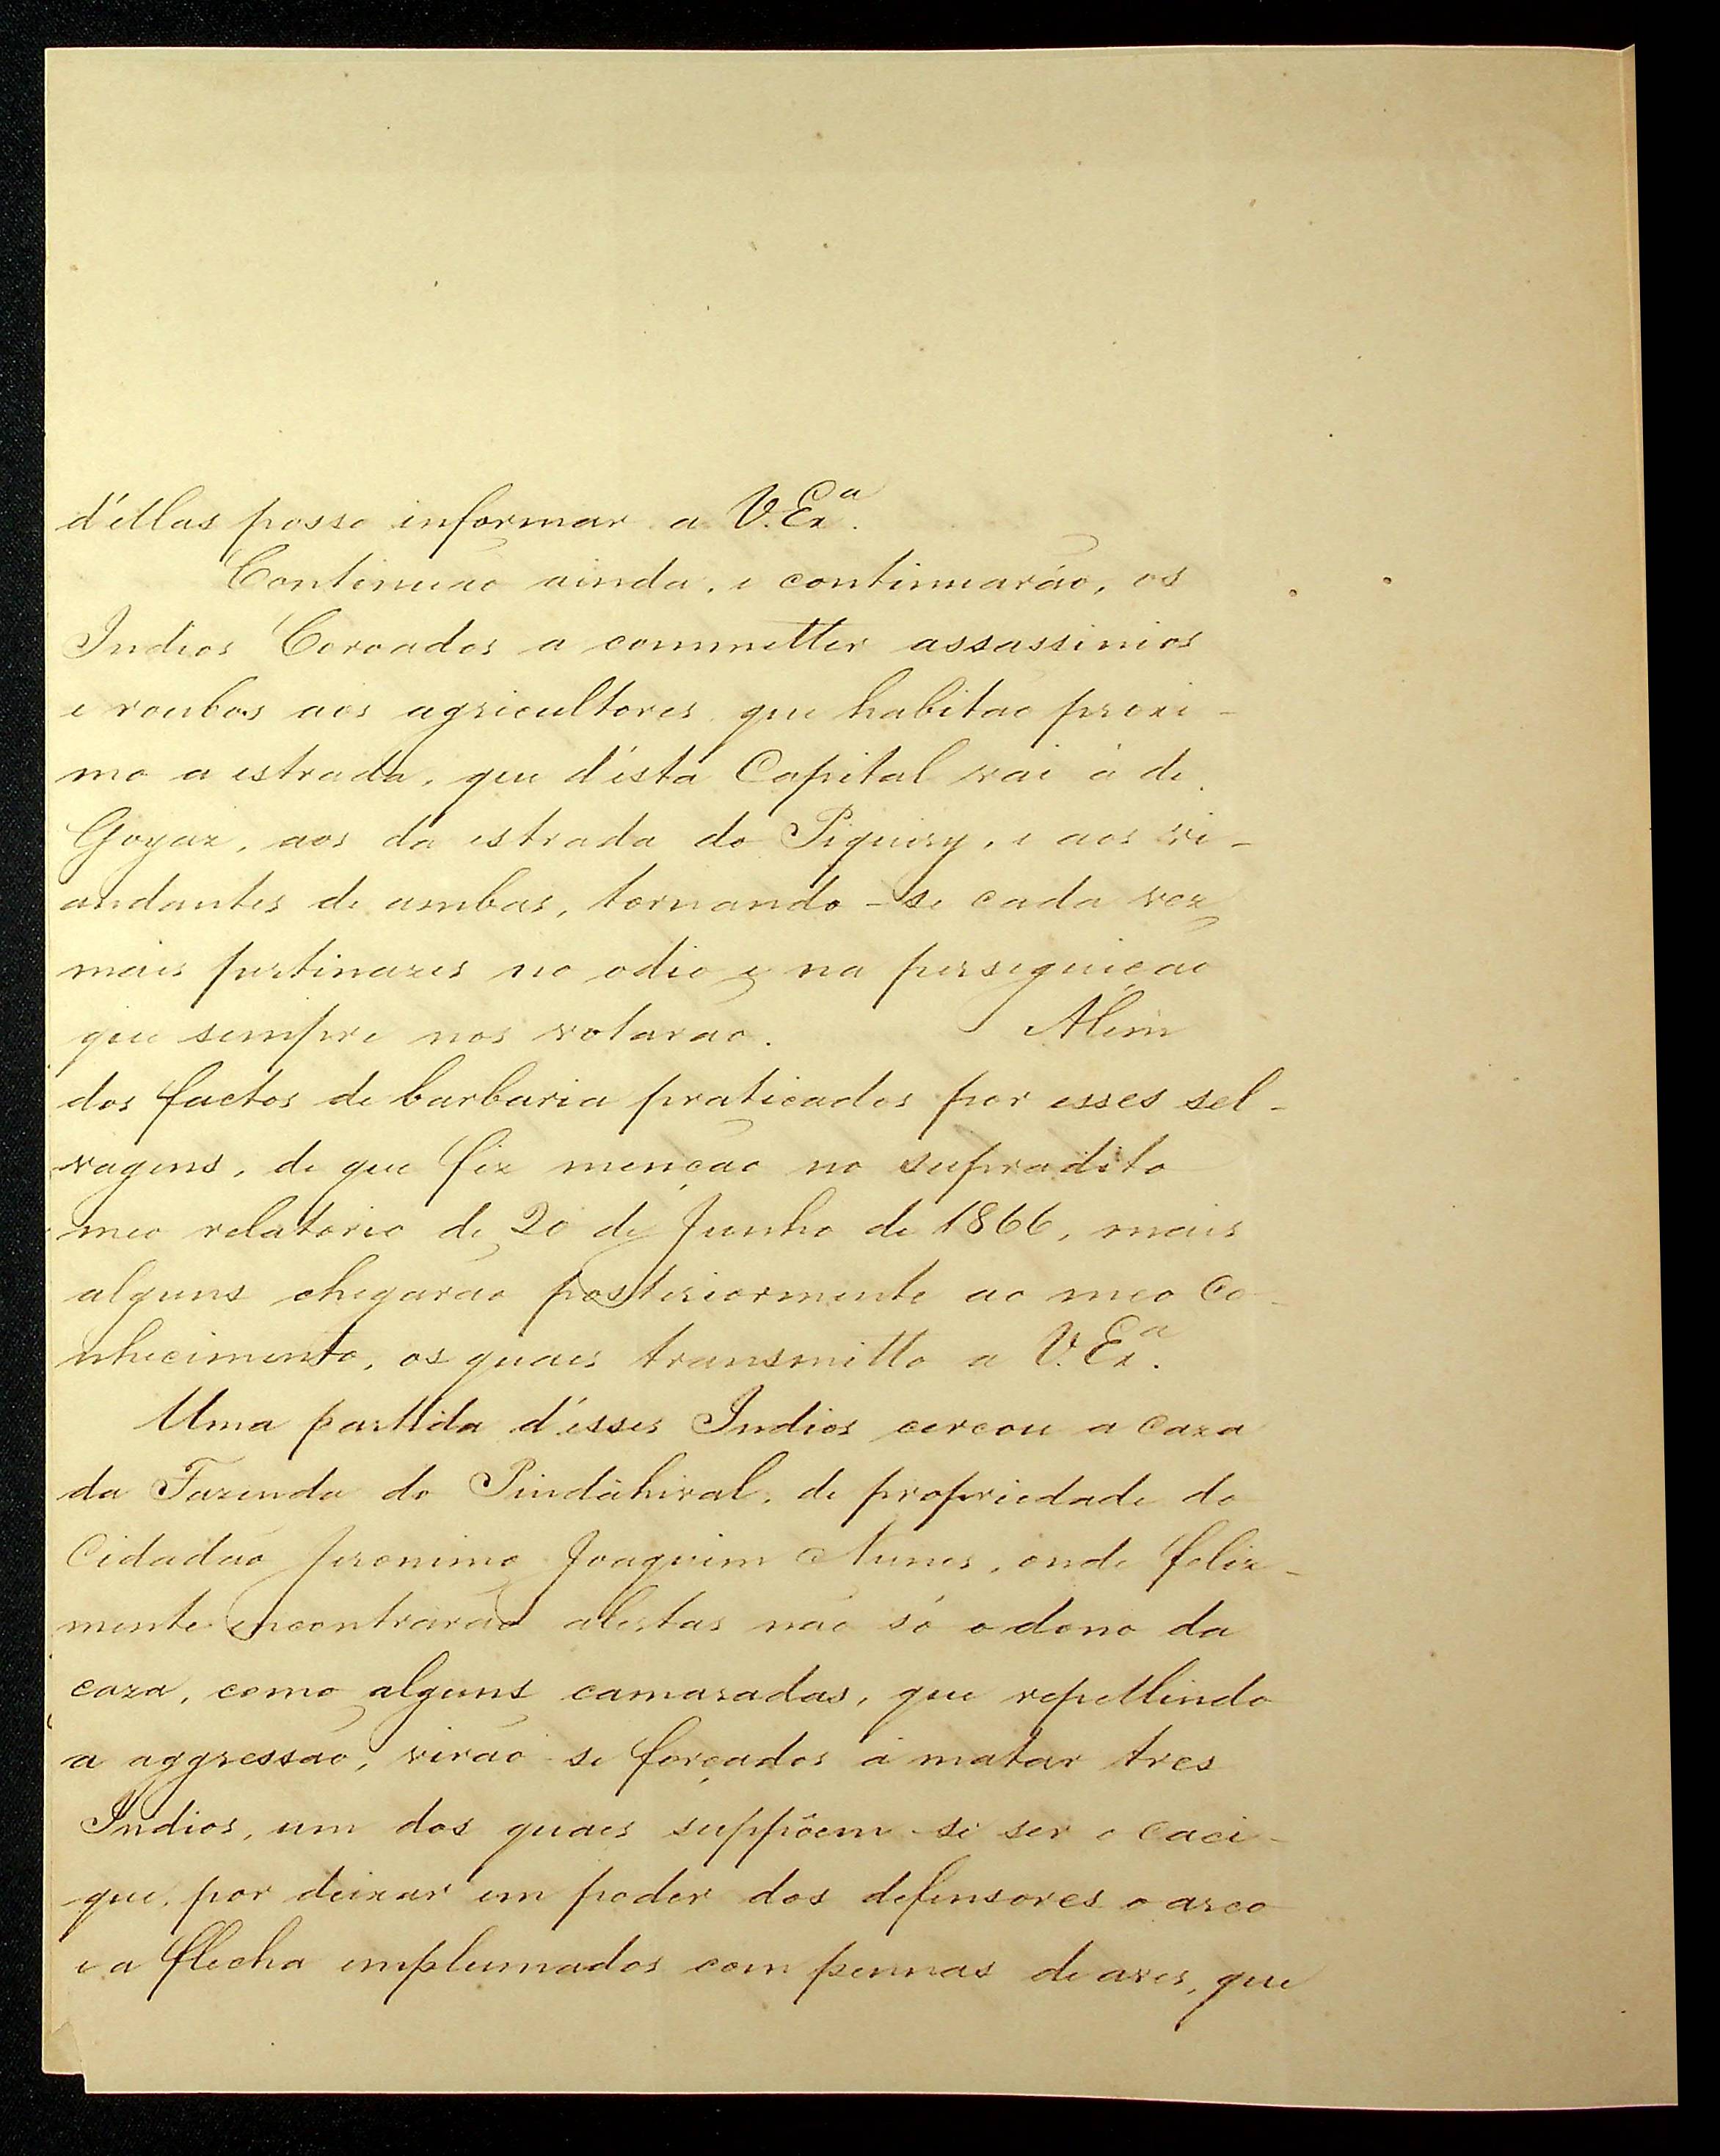 d'ellas posso informar a V. Ex.ª
Continuão ainda, e continuarão, os
Indios Coroados a commetter assassinios
e roubos aos agricultores que habitão proxi-
mo a estrada, que d'esta Capital vai á de
Goyaz, aos da estrada do Piquiry, e aos vi-
andantes de ambas, tornando-se cada vez
mais pertinazes no odio e na perseguição
que sempre nos votarão. Alem
dos factos de barbaria praticados por esses sel-
vagens, de que fiz menção no supradito
meo relatorio de 20 de Junho de 1866, mais
alguns chegarão posteriormente ao meo co-
nhecimento, os quaes transmitto a V. Ex.ª
Uma partida d'esses Indios cercou a caza
da Fazenda do Pindahival, de propriedade do
Cidadão Jeronimo Joaquim Nunes, onde feliz-
mente encontrarão alertas não só o dono da
caza, como alguns camaradas, que repellindo
a aggressão, virão-se forçados á matar tres
Indios, um dos quaes suppõem-se ser o caci-
que, por deixar em poder dos defensores o arco
e a flecha emplumados com pennas de aves, que